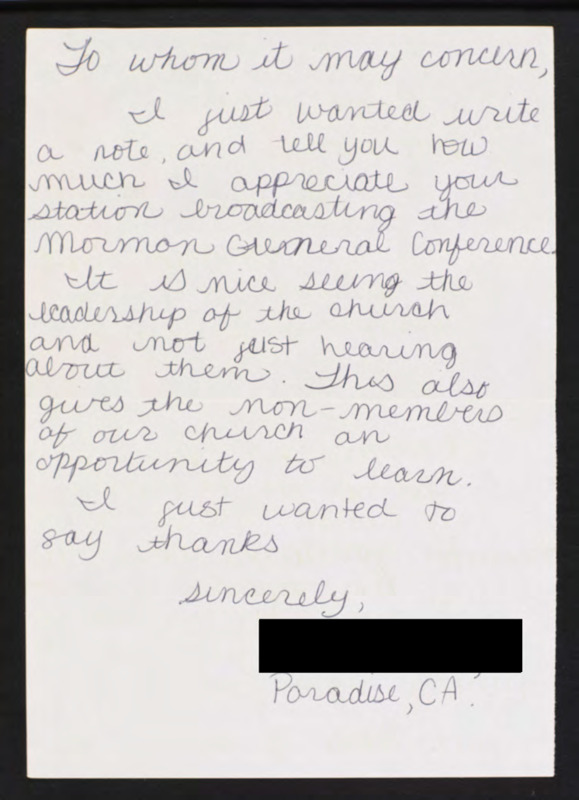 To whom it may concern,
I just wanted write
a note, and tell you how
much I appreciate your
station broadcasting the
Mormon General Conference
It is nice seeing the
leadership of the church
and not just hearing
about them. This also
gives the non-members
of our church an
opportunity to learn.
I just wanted to
say thanks
sincerely,
Paradise, CA.